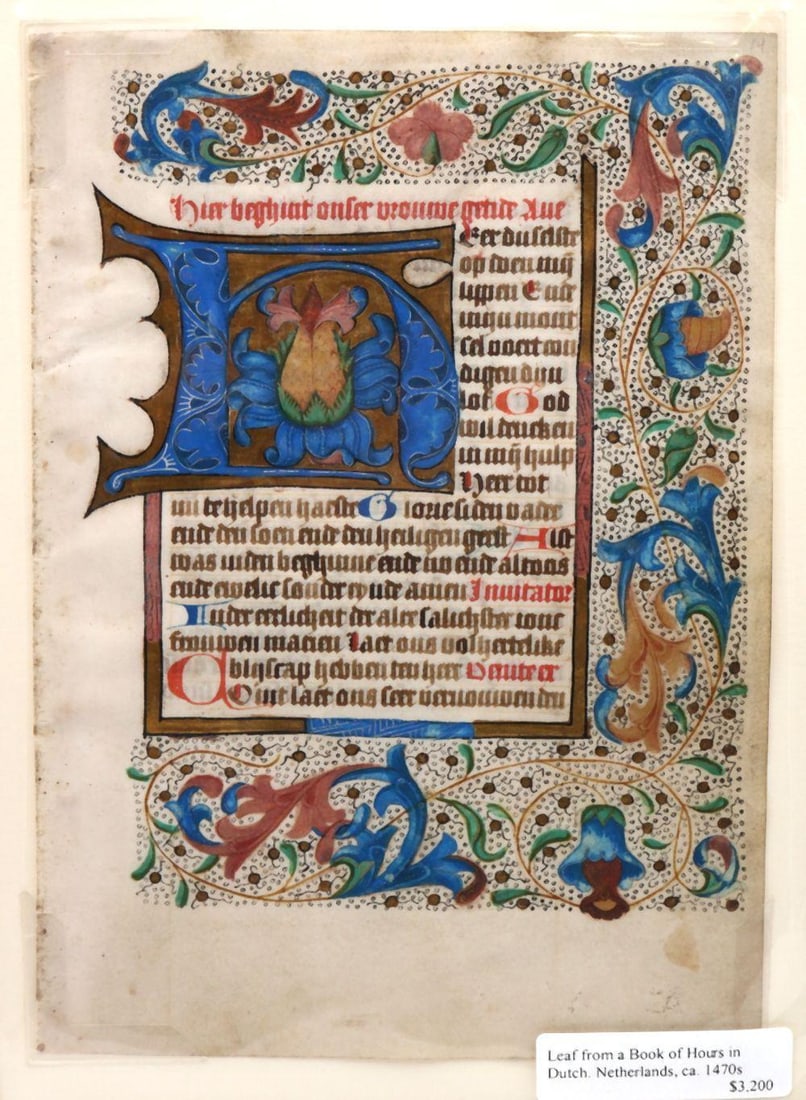 14
Hier beghint onser vrouwe getide Aue
HEer du selste
op doen mij
lippen Ende
mijn mont
sel voert con
digen dijn
lof God
wil dencken
in mij hulp
Heer tot
mi te helpen haeste Glorie si den vader
ende den soen ende den heiligen geest Alst
was inden beghinne ende nv ende altoos
ende ewelic sonder eynde amen Inuitator
Inder eerlicheit der aler salichster ionc
frouwen marien Laet ons volhertelike
blijscap hebben ten heer Venite ex
COmt laet ons seer vervrouwen den
Leaf from a Book of Hours in
Dutch. Netherlands, ca. 1470s
$3,200